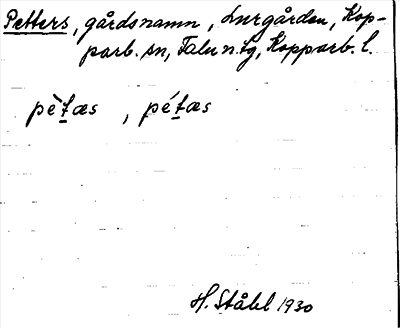 Petters, gårdsnamn, Lurgården, Kop-
parb. sn, Falu n. tg, Kopparb. l.
pèt̲æs , pét̲æs
H. Ståhl 1930